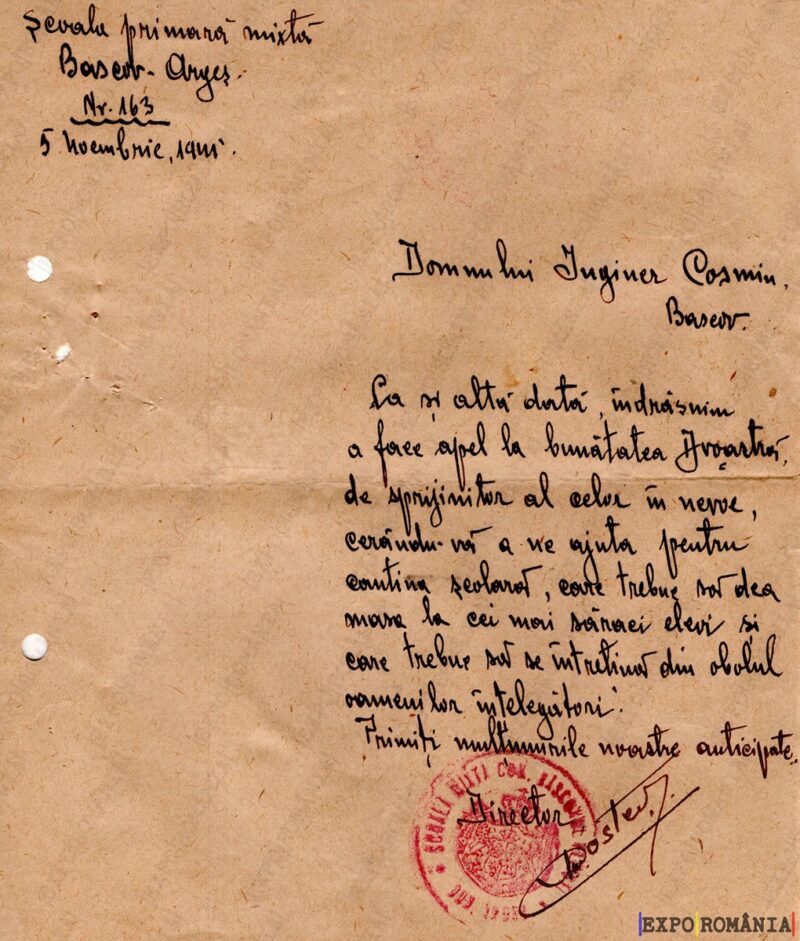 Școala primară mixtă
Bascov-Argeș.
Nr. 163
5 Noembrie, 1941.
Domnului Inginer Cosmin,
Bascov.
Ca și altă dată, îndrăsnim
a face apel la bunătatea Dvoastră,
de sprijinitor al celor în nevoe,
cerându-vă a ne ajuta pentru
cantina școlară, care trebue să dea
masa la cei mai săraci elevi și
care trebue să se întrețină din obolul
oamenilor înțelegători.
Primiți mulțumirile noastre anticipate.
Director
EXPO ROMÂNIA